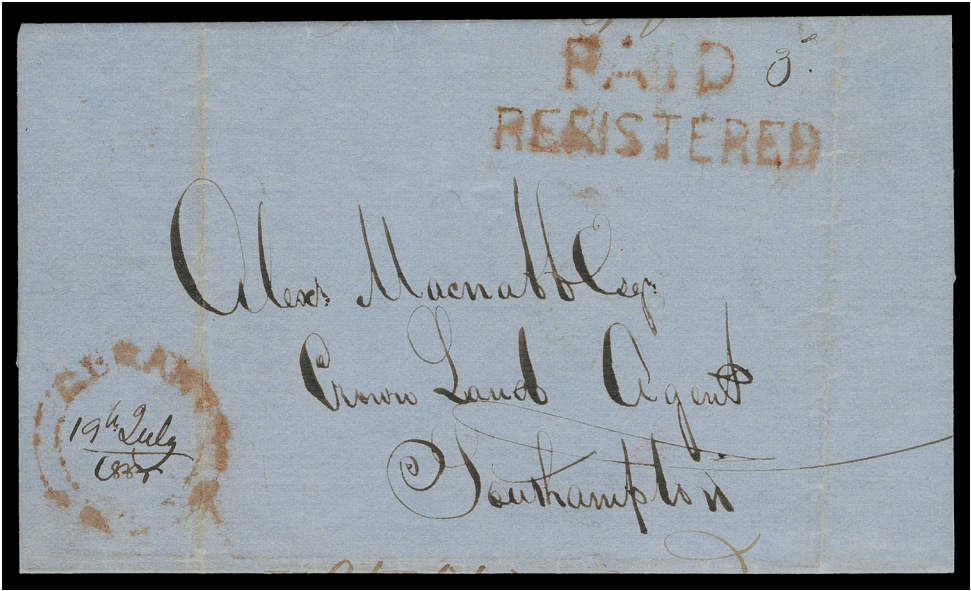 PAID 3
REGISTERED
Alexr. Macnabb Esqr.
Crown Land Agent
Southampton
19th July